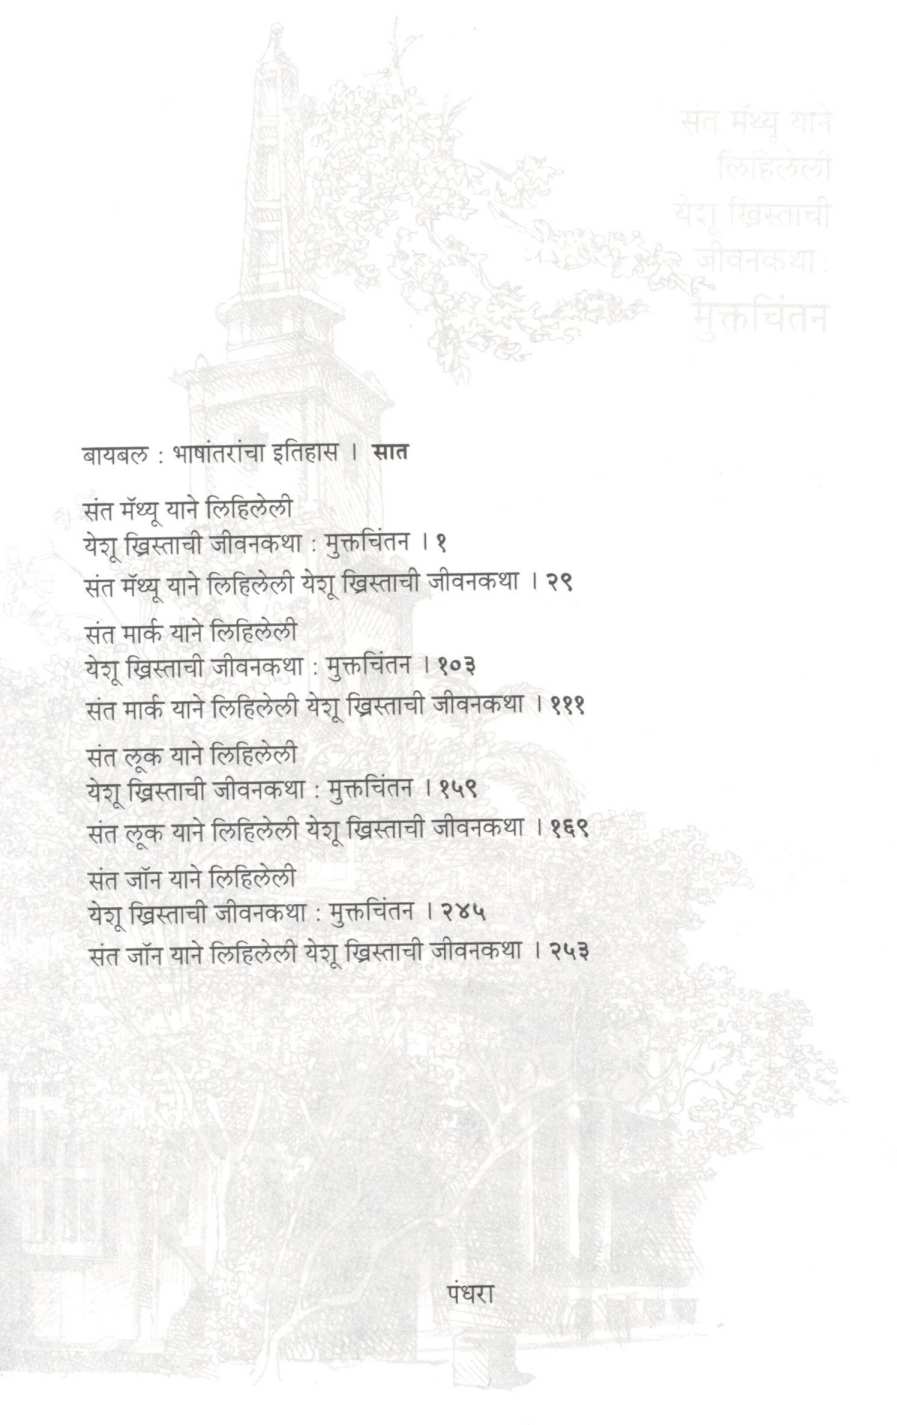 संत मॅथ्यू याने
लिहिलेली
येशू ख्रिस्ताची
जीवनकथा :
मुक्तचिंतन
बायबल : भाषांतरांचा इतिहास । सात
संत मॅथ्यू याने लिहिलेली
येशू ख्रिस्ताची जीवनकथा : मुक्तचिंतन । १
संत मॅथ्यू याने लिहिलेली येशू ख्रिस्ताची जीवनकथा । २९
संत मार्क याने लिहिलेली
येशू ख्रिस्ताची जीवनकथा : मुक्तचिंतन । १०३
संत मार्क याने लिहिलेली येशू ख्रिस्ताची जीवनकथा । १११
संत लूक याने लिहिलेली
येशू ख्रिस्ताची जीवनकथा : मुक्तचिंतन । १५९
संत लूक याने लिहिलेली येशू ख्रिस्ताची जीवनकथा । १६९
संत जॉन याने लिहिलेली
येशू ख्रिस्ताची जीवनकथा : मुक्तचिंतन । २४५
संत जॉन याने लिहिलेली येशू ख्रिस्ताची जीवनकथा । २५३
पंधरा